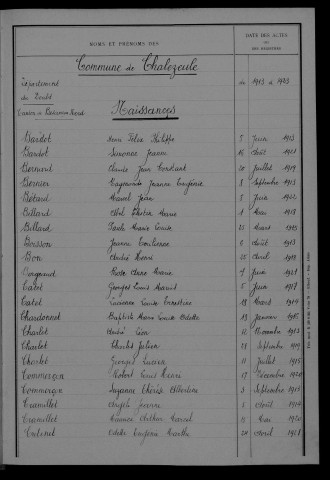 NOMS ET PRÉNOMS DES
DATE DES ACTES
OU
DES REGISTRES
Commune de Chalezeule
de 1913 à 1923
Département
du Doubs
Canton de Besançon Nord
Naissances
Bardot Henri Félix Philippe 5 Juin 1913
Bardot Suzanne Jeanne 16 Août 1921
Bernard Claude Jean Constant 20 Juillet 1919
Bernier Raymonde Jeanne Eugénie 8 Septembre 1913
Bétard Marcel Jean 5 Juin 1922
Billard Abel Marie 1 Mai 1913
Billard Paule Marie Louise 25 Mars 1915
Boisson Jeanne Emilienne 6 Août 1913
Bon André Henri 22 Avril 1918
Bongeand Rose Anne Marie 7 Juin 1921
Catet Georges Louis Marcel 5 Juin 1917
Catet Louise Ernestine 18 Mars 1914
Chardonnet Baptiste Marie Louise Odette 13 Janvier 1915
Charlet André Léon 11 Novembre 1913
Charlot Charles Julien 23 Septembre 1919
Charlot Georges Lucien 11 Juillet 1915
Commerçon Robert Louis Henri 17 Décembre 1920
Commerçon Suzanne Thérèse Albertine 3 Septembre 1915
Cramillet Angèle 5 Août 1914
Cramillet Maurice Arthur Marcel 11 Mai 1920
Cutenet Odette Eugénie Marthe 20 Avril 1921